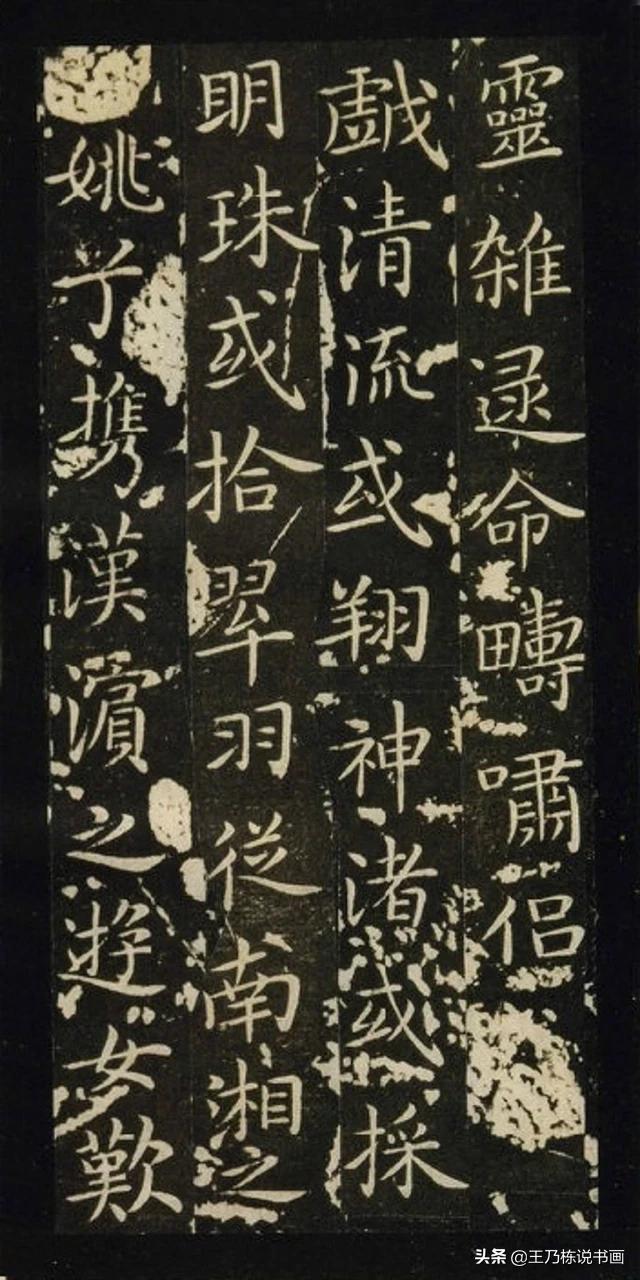 靈雜遝命疇嘯侶
戯清流或翔神渚或採
明珠或拾翠羽從南湘之
姚兮攜漢濱之遊女歎
头条 @王乃栋说书画